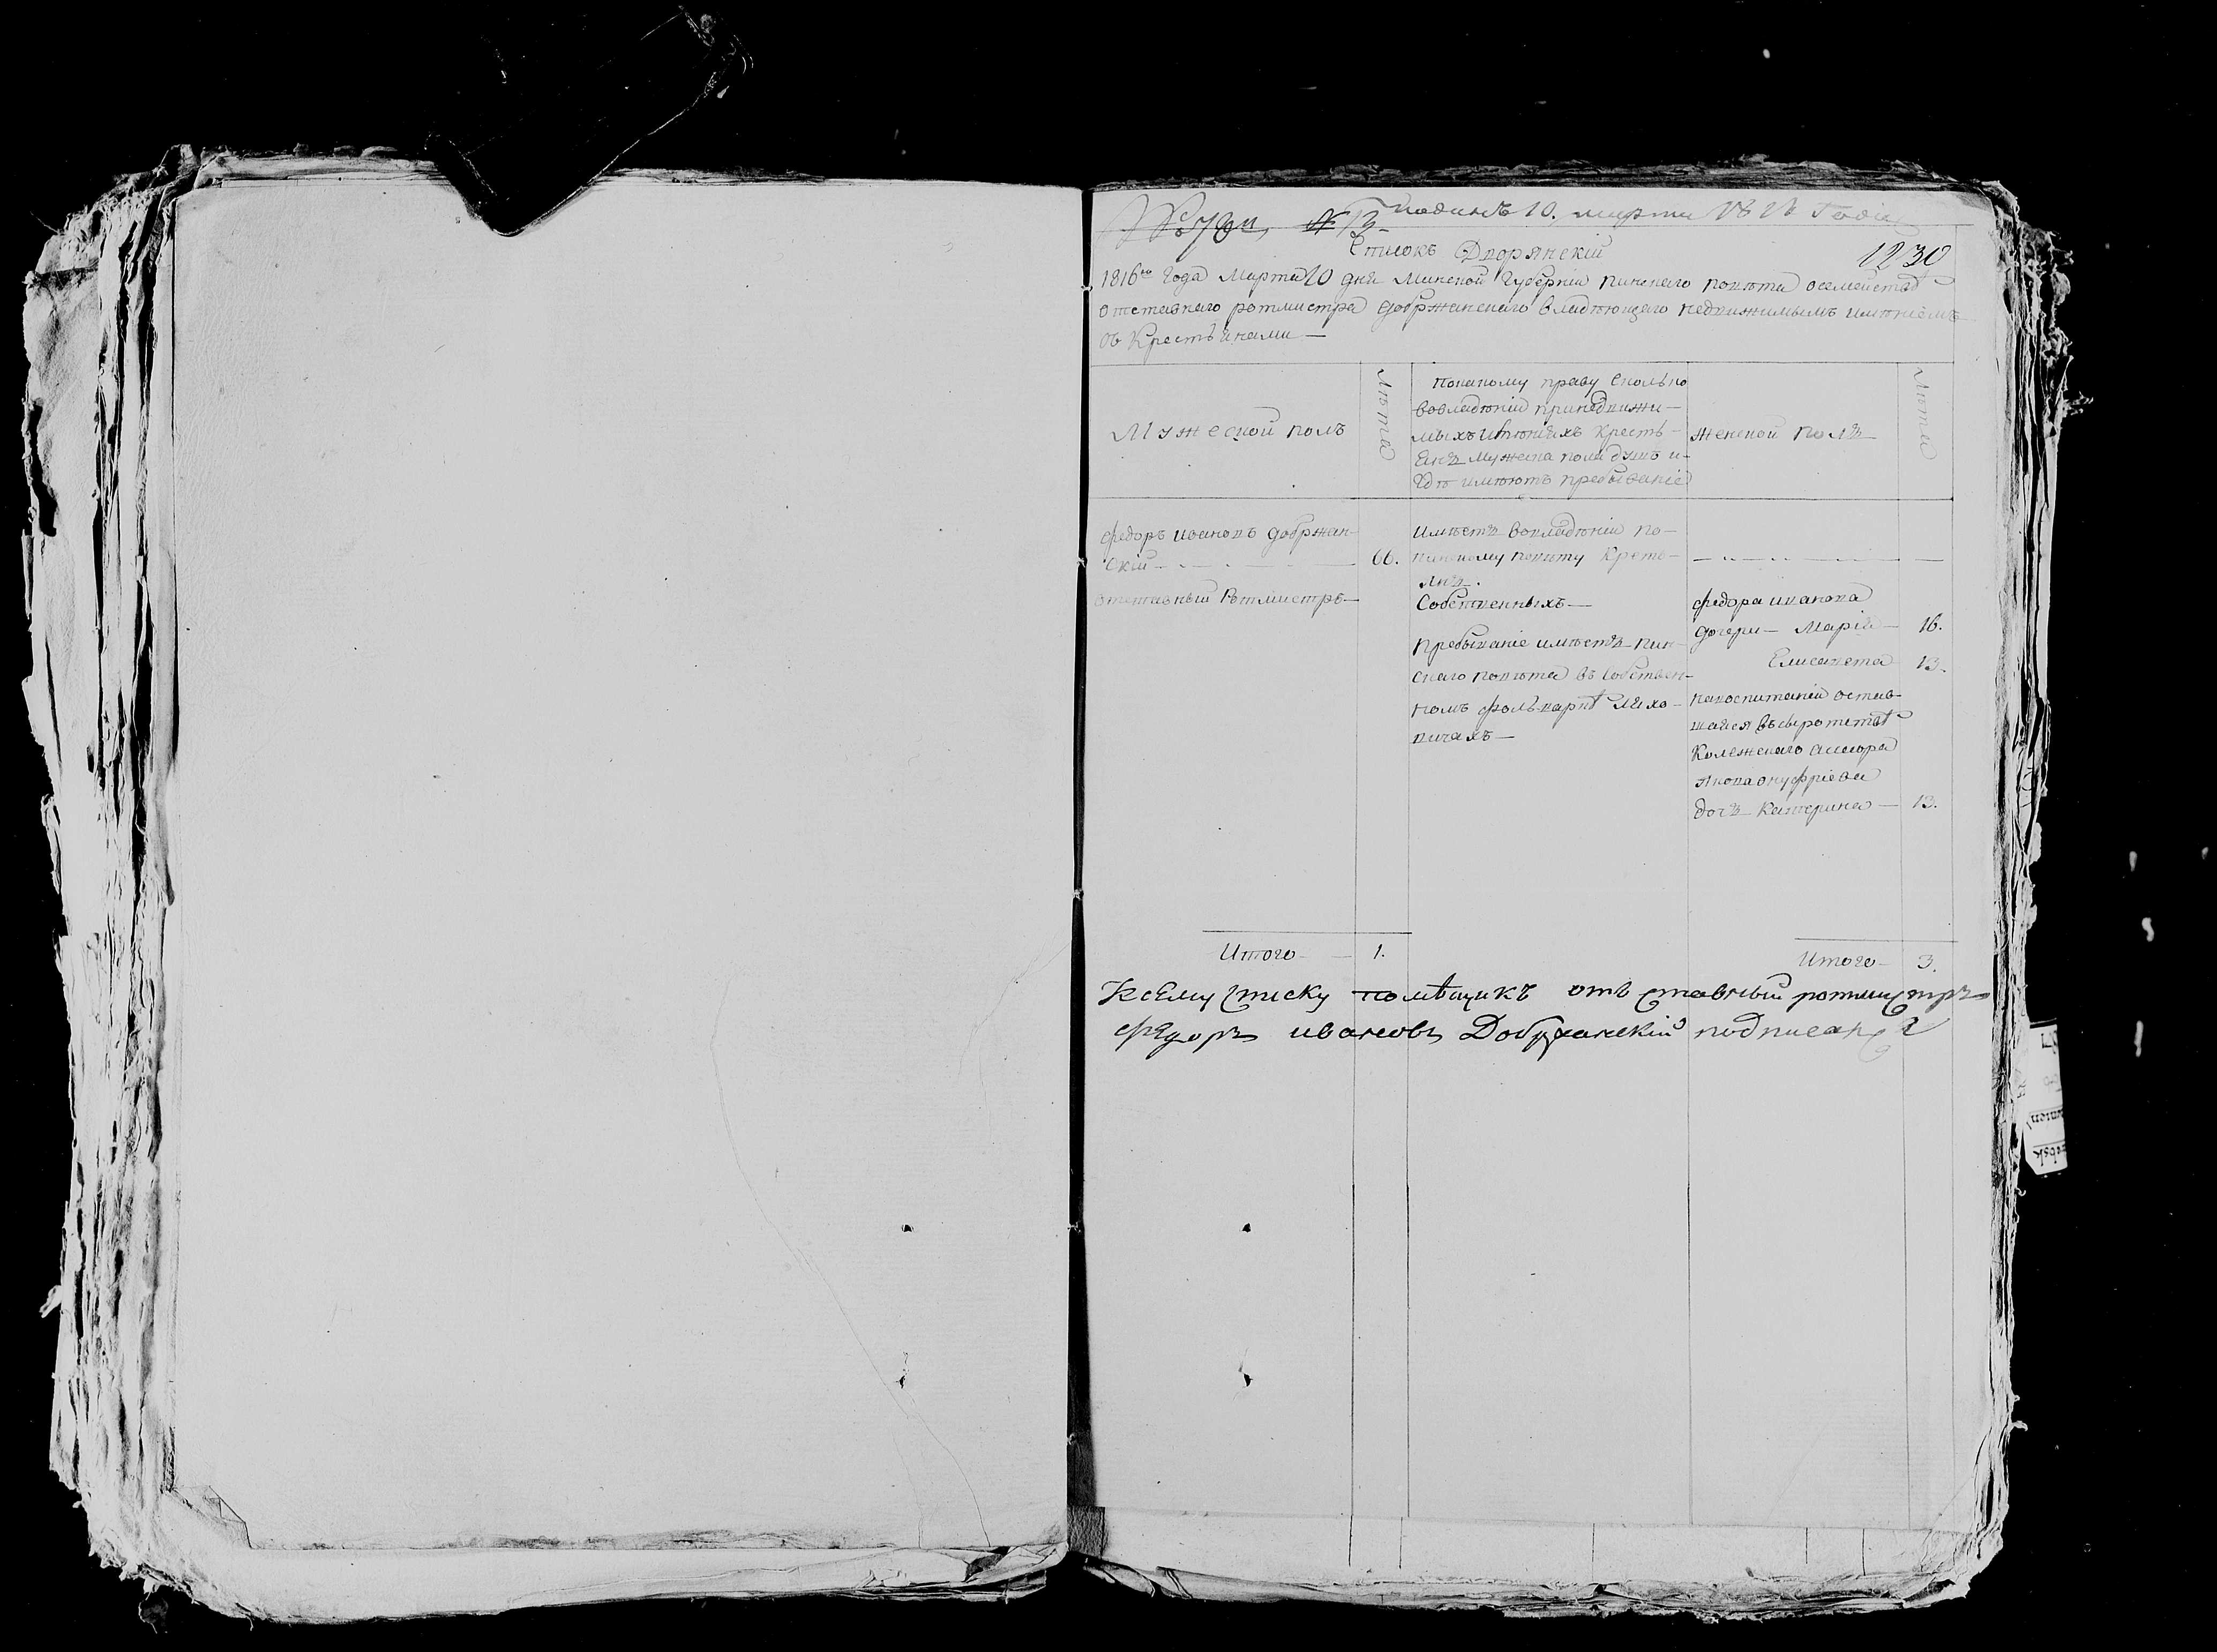 поданъ 10. марта 1816 Года
Списокъ Дворянскій
1230
1816го Года Марта 10 дня Минской Губерніи пинскаго повѣта осемействѣ
отставнаго ротмистра добржанскаго владѣющаго недвижимымъ имѣніемъ
съ Крестьянами —
Мужеской полъ
Лѣта
Покакому праву сколько
вовладѣніи принедвижи-
мыхъ имѣніяхъ кресть-
янъ мужеска пола душъ и
Гдѣ имѣютъ пребываніе
женской полъ
Лѣта
федоръ ивановъ добржан-
скій — 66.
отставный Ротмистръ —
имѣетъ вовладѣніи по-
пинскому повѣту Кресть-
янъ.
Собственныхъ —
пребываніе имѣетъ пин-
скаго повѣта въ собствен-
номъ фольваркѣ Ляхо-
вичахъ —
федора иванова
дочери — Марія — 16.
Елисавета 13.
навоспитаніи остав-
шаяся въ сыротствѣ
Колежскаго асесора
якова онуфріева
дочъ Катерина — 13.
Итого — 1.
Итого — 3.
Ксему списку помѣщикъ отъставный ротмистръ
федоръ ивановъ Добржанскій подписался